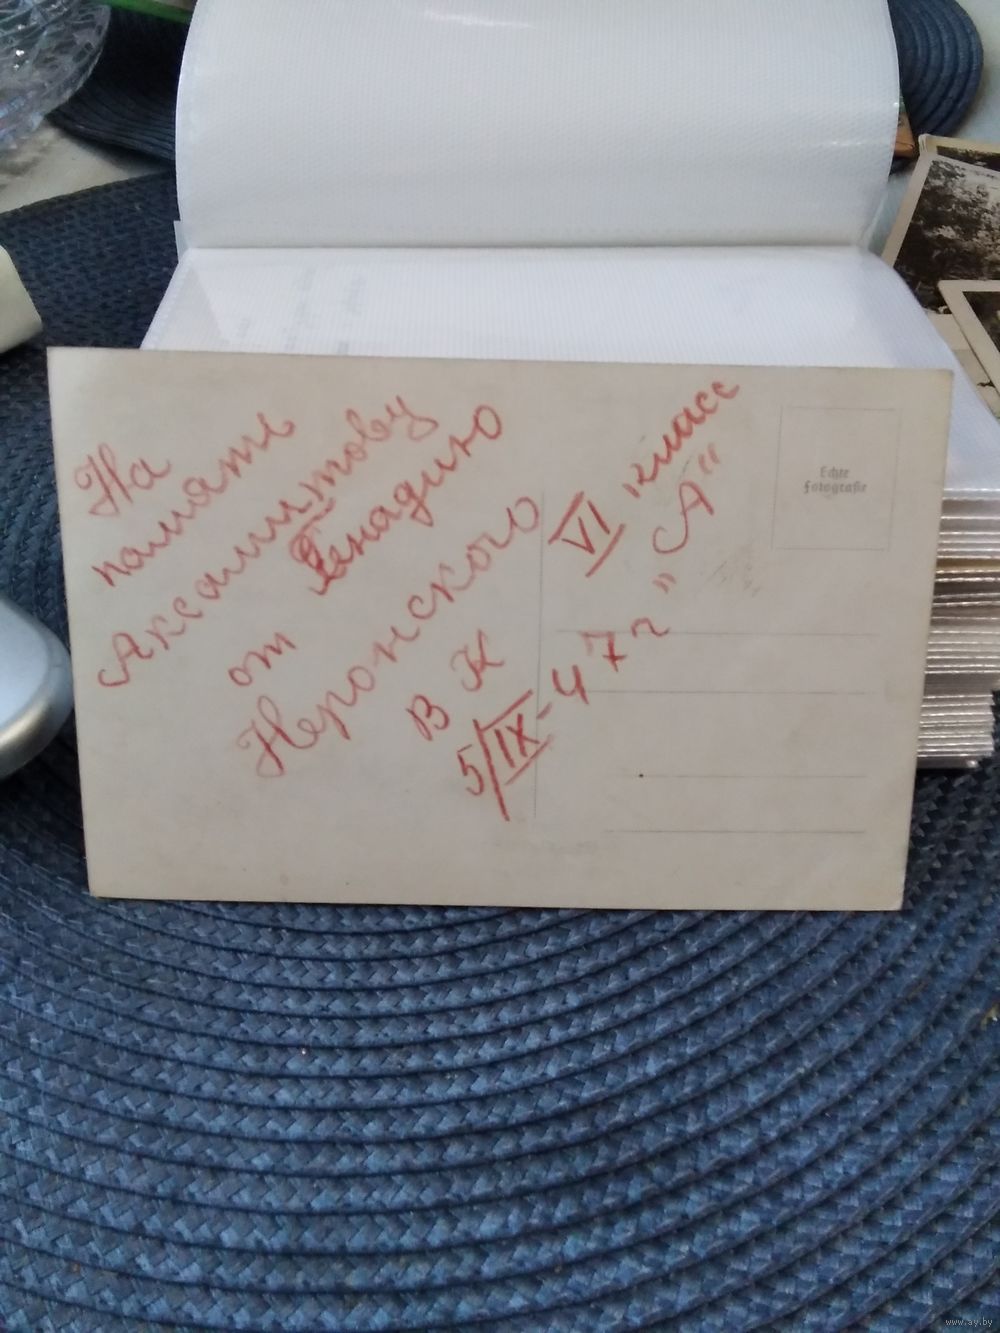 На
память
Аксамитову
Генадию
от
Неронского
В К
5/IX-47 г
VI класс
"А"
Echte
Fotografie
www.ay.by